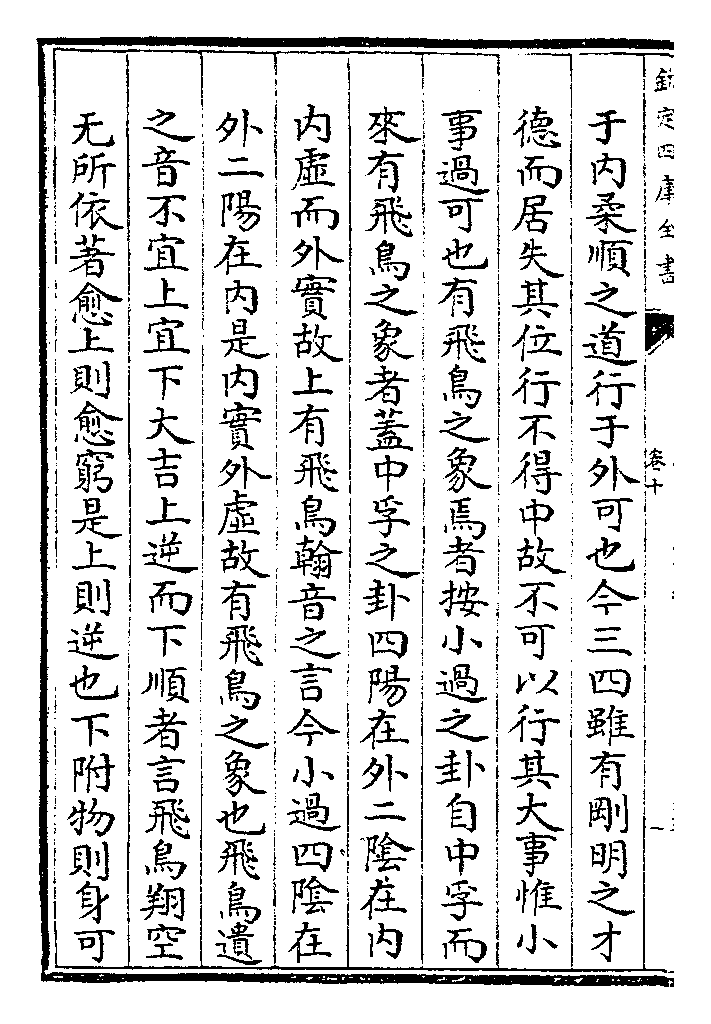 欽定四庫全書
卷十
于内柔順之道行于外可也今三四雖有剛明之才
德而居失其位行不得中故不可以行其大事惟小
事過可也有飛鳥之象焉者按小過之卦自中孚而
來有飛鳥之象者蓋中孚之卦四陽在外二陰在内
内虛而外實故上有飛鳥翰音之言今小過四陰在
外二陽在内是内實外虛故有飛鳥之象也飛鳥遺
之音不宜上宜下大吉上逆而下順者言飛鳥翔空
无所依著愈上則愈窮是上則逆也下附物則身可